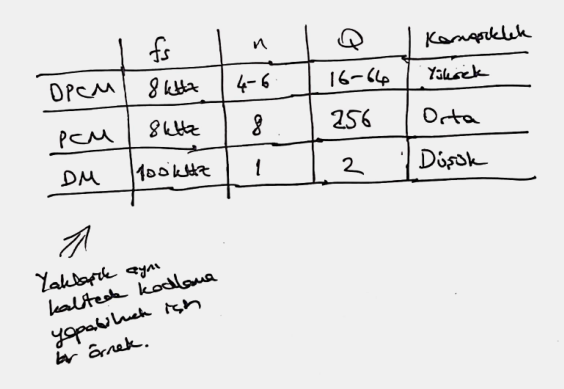 fs n Q Karmaşıklık
DPCM 8 kHz 4-6 16-64 Yüksek
PCM 8 kHz 8 256 Orta
DM 100 kHz 1 2 Düşük
Yaklaşık aynı
kalitede kodlama
yapabilmek için
bir örnek.